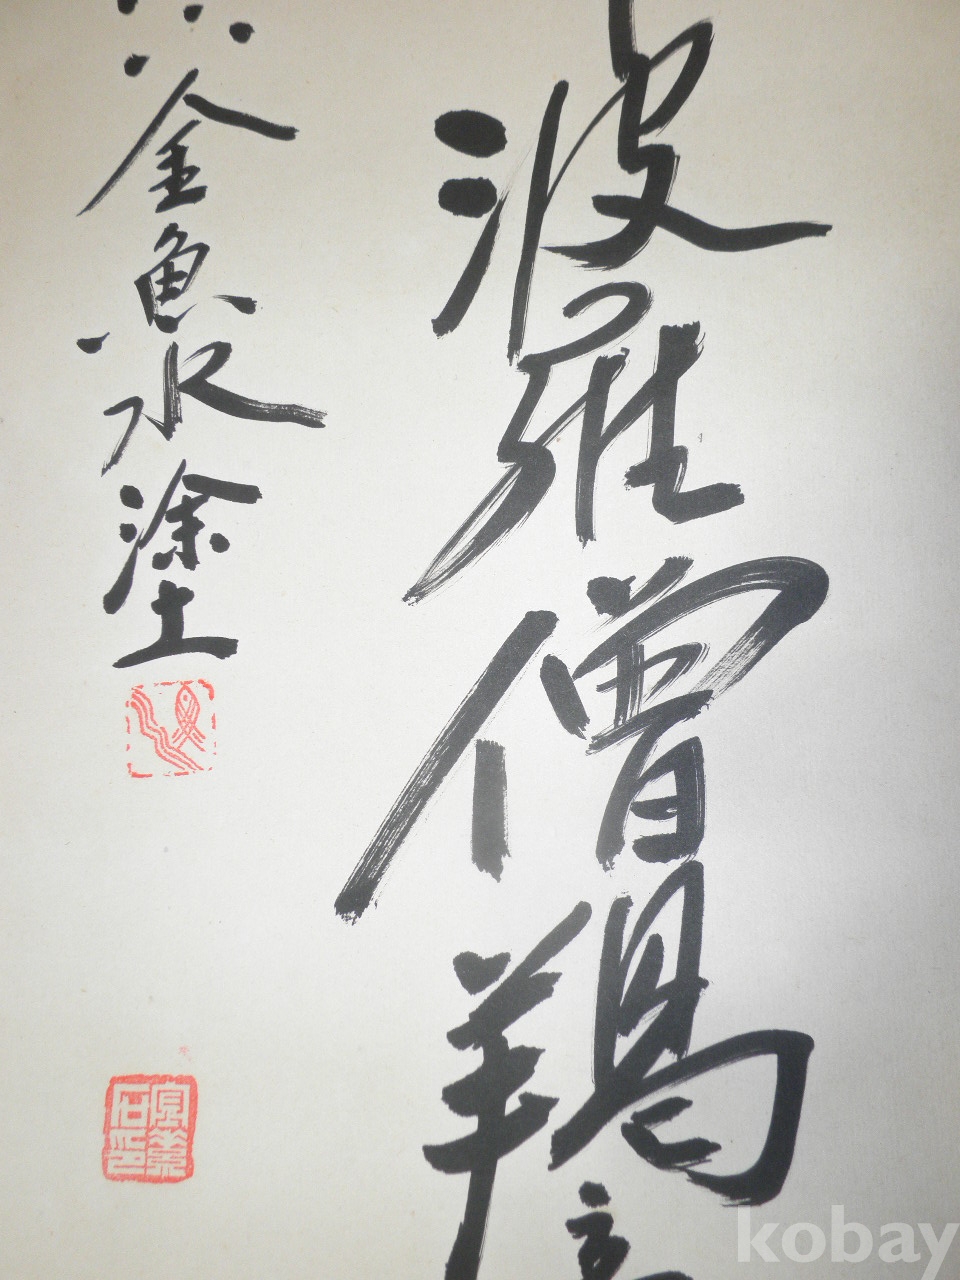 波羅僧羯
金魚水塗
kobay